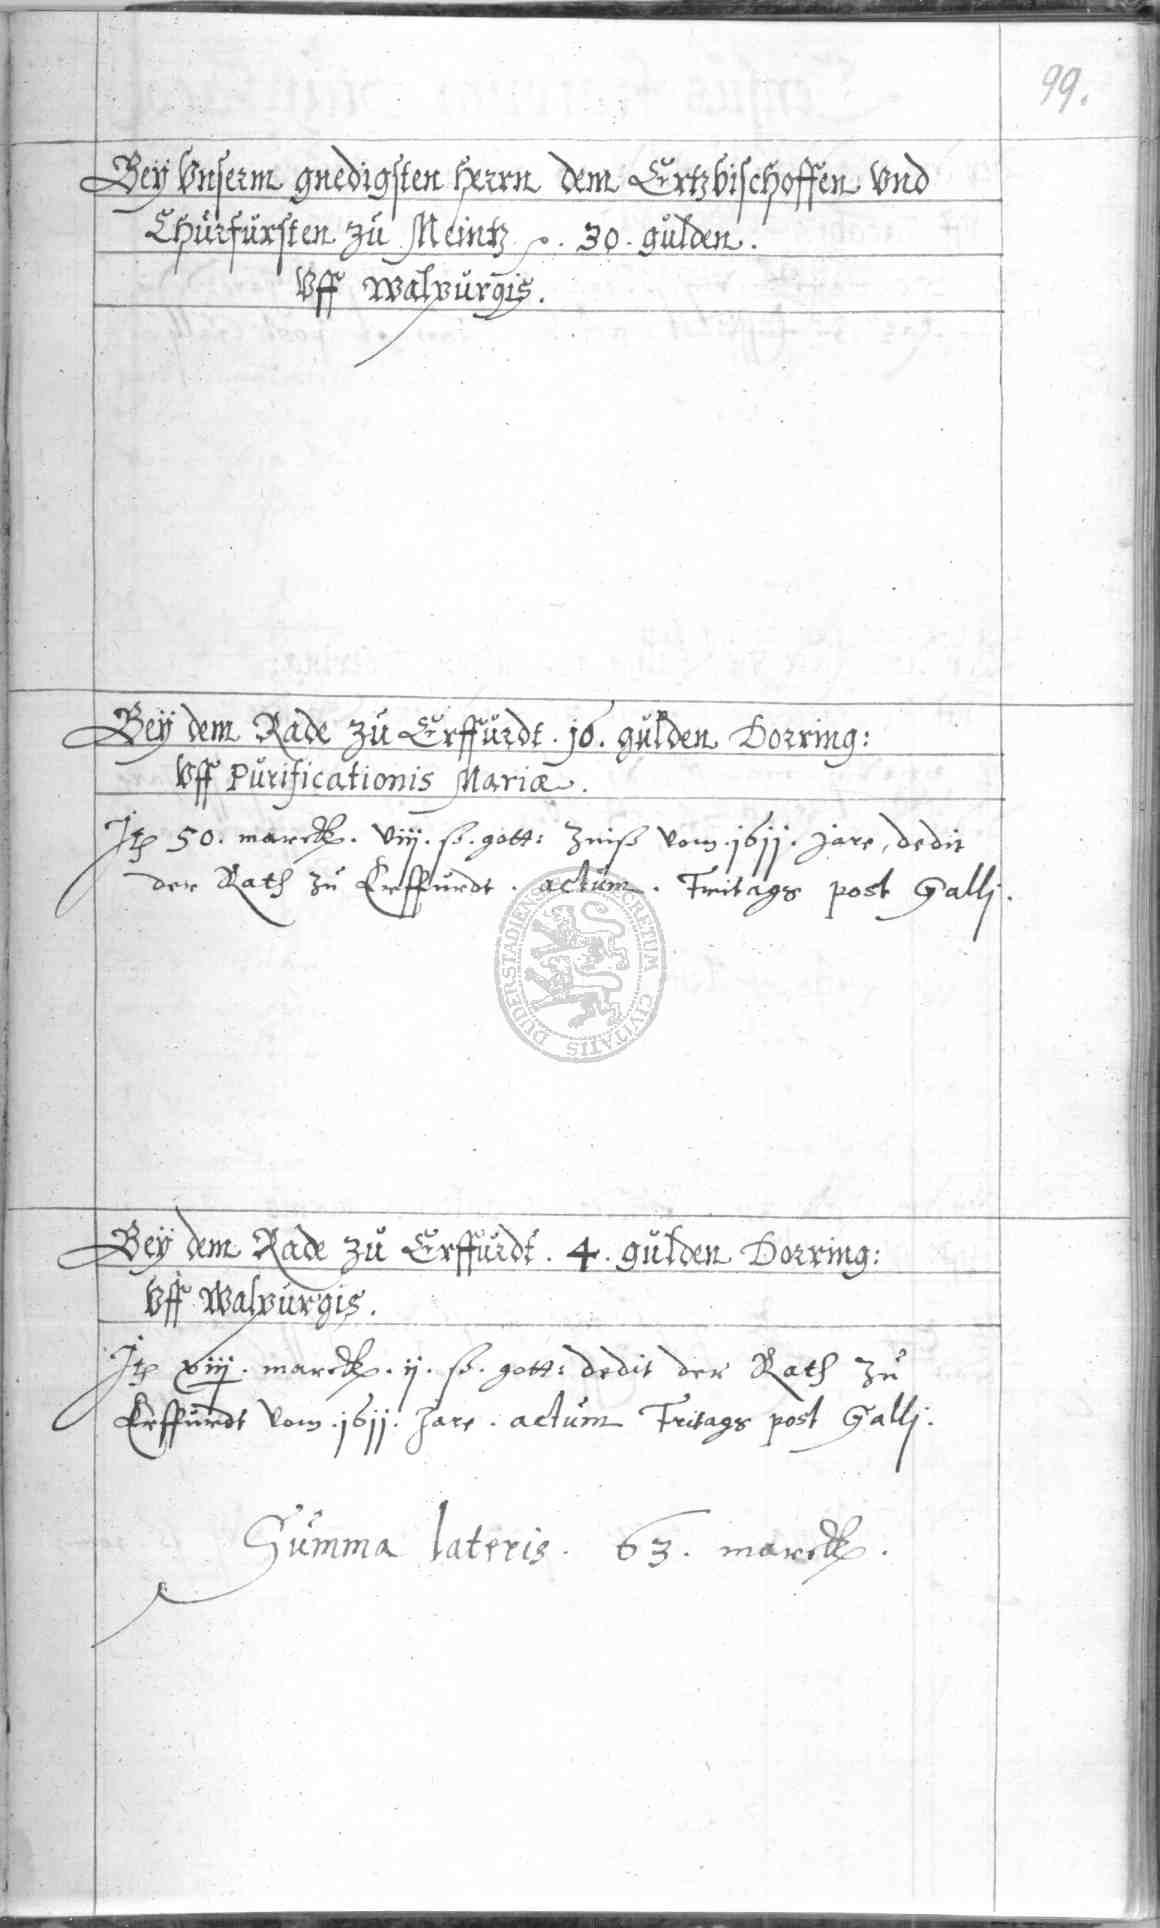 99.
Beÿ Vnserm gnedigsten Herrn dem Ertzbischoffen Vnd
Churfürsten zu Meintz . 30 . gulden .
Vff Walpurgis .
Beÿ dem Rade zu Erffurdt . j6 . gulden Dorring :
Vff Purificationis Mariæ .
Jtem 50 . marck . viij . ß . gott : Zinß vom . j6jj . Jare , dedit
der Rath zu Erffurdt . actum . Fritags post Gallj .
SECRETUM CIVITATIS DUDERSTADIENSIS
Beÿ dem Rade zu Erffurdt . 4 . gulden Dorring :
Vff Walpurgis .
Jtem . marck . ij . ß . gott : dedit der Rath zu
Erffurdt vom . j6jj . Jare . actum Fritags post Gallj .
Summa lateris . 63 . marck .